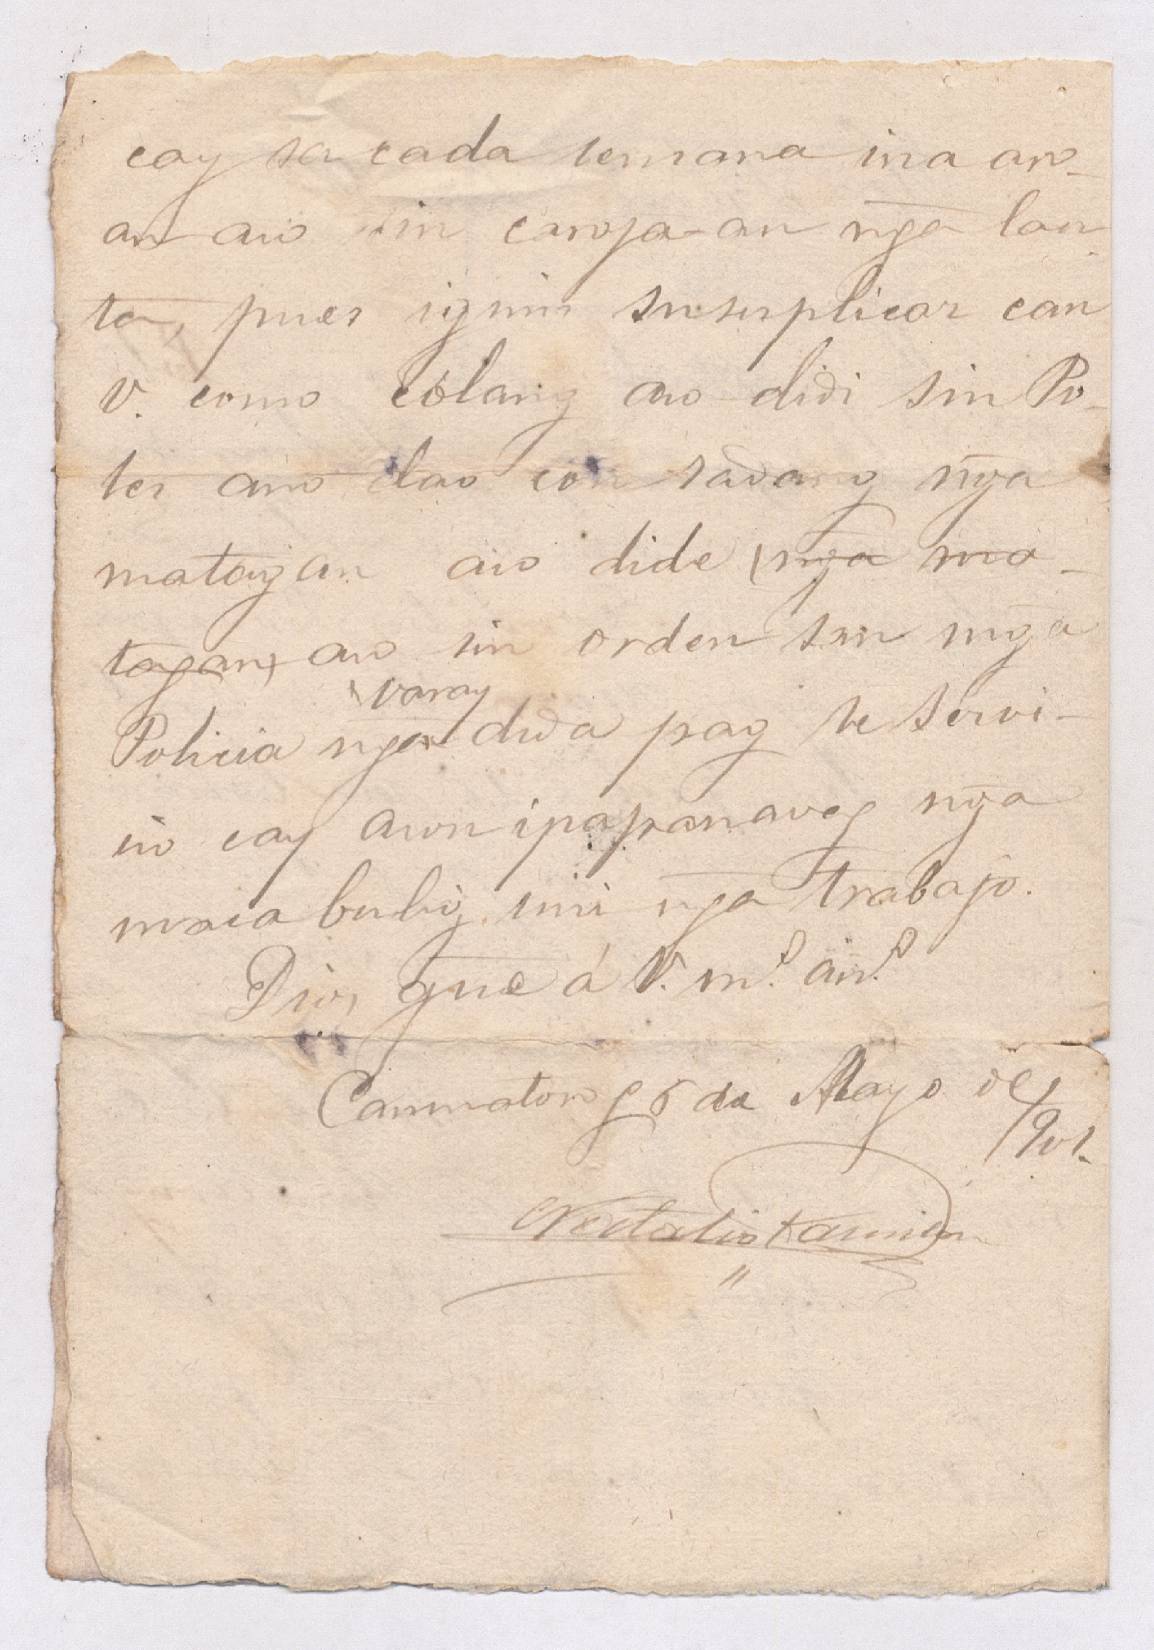 cay sa cada semana ina aro-
an aco sin caroja-an nga lau
ta, pues iguin susuplicar can
V. como colang aco didi sin Po-
les ano dao con sadang nga
matagan aco dide nga ma-
tagan, aco sin orden san mga
Policia nga varay dida pag se servi-
cio cay awon ipapanaveg nga
maca bulig inin nga trabajo.
Dios gue á V. m.s añ.s
Canmatong 6 de Mayo de
1901.